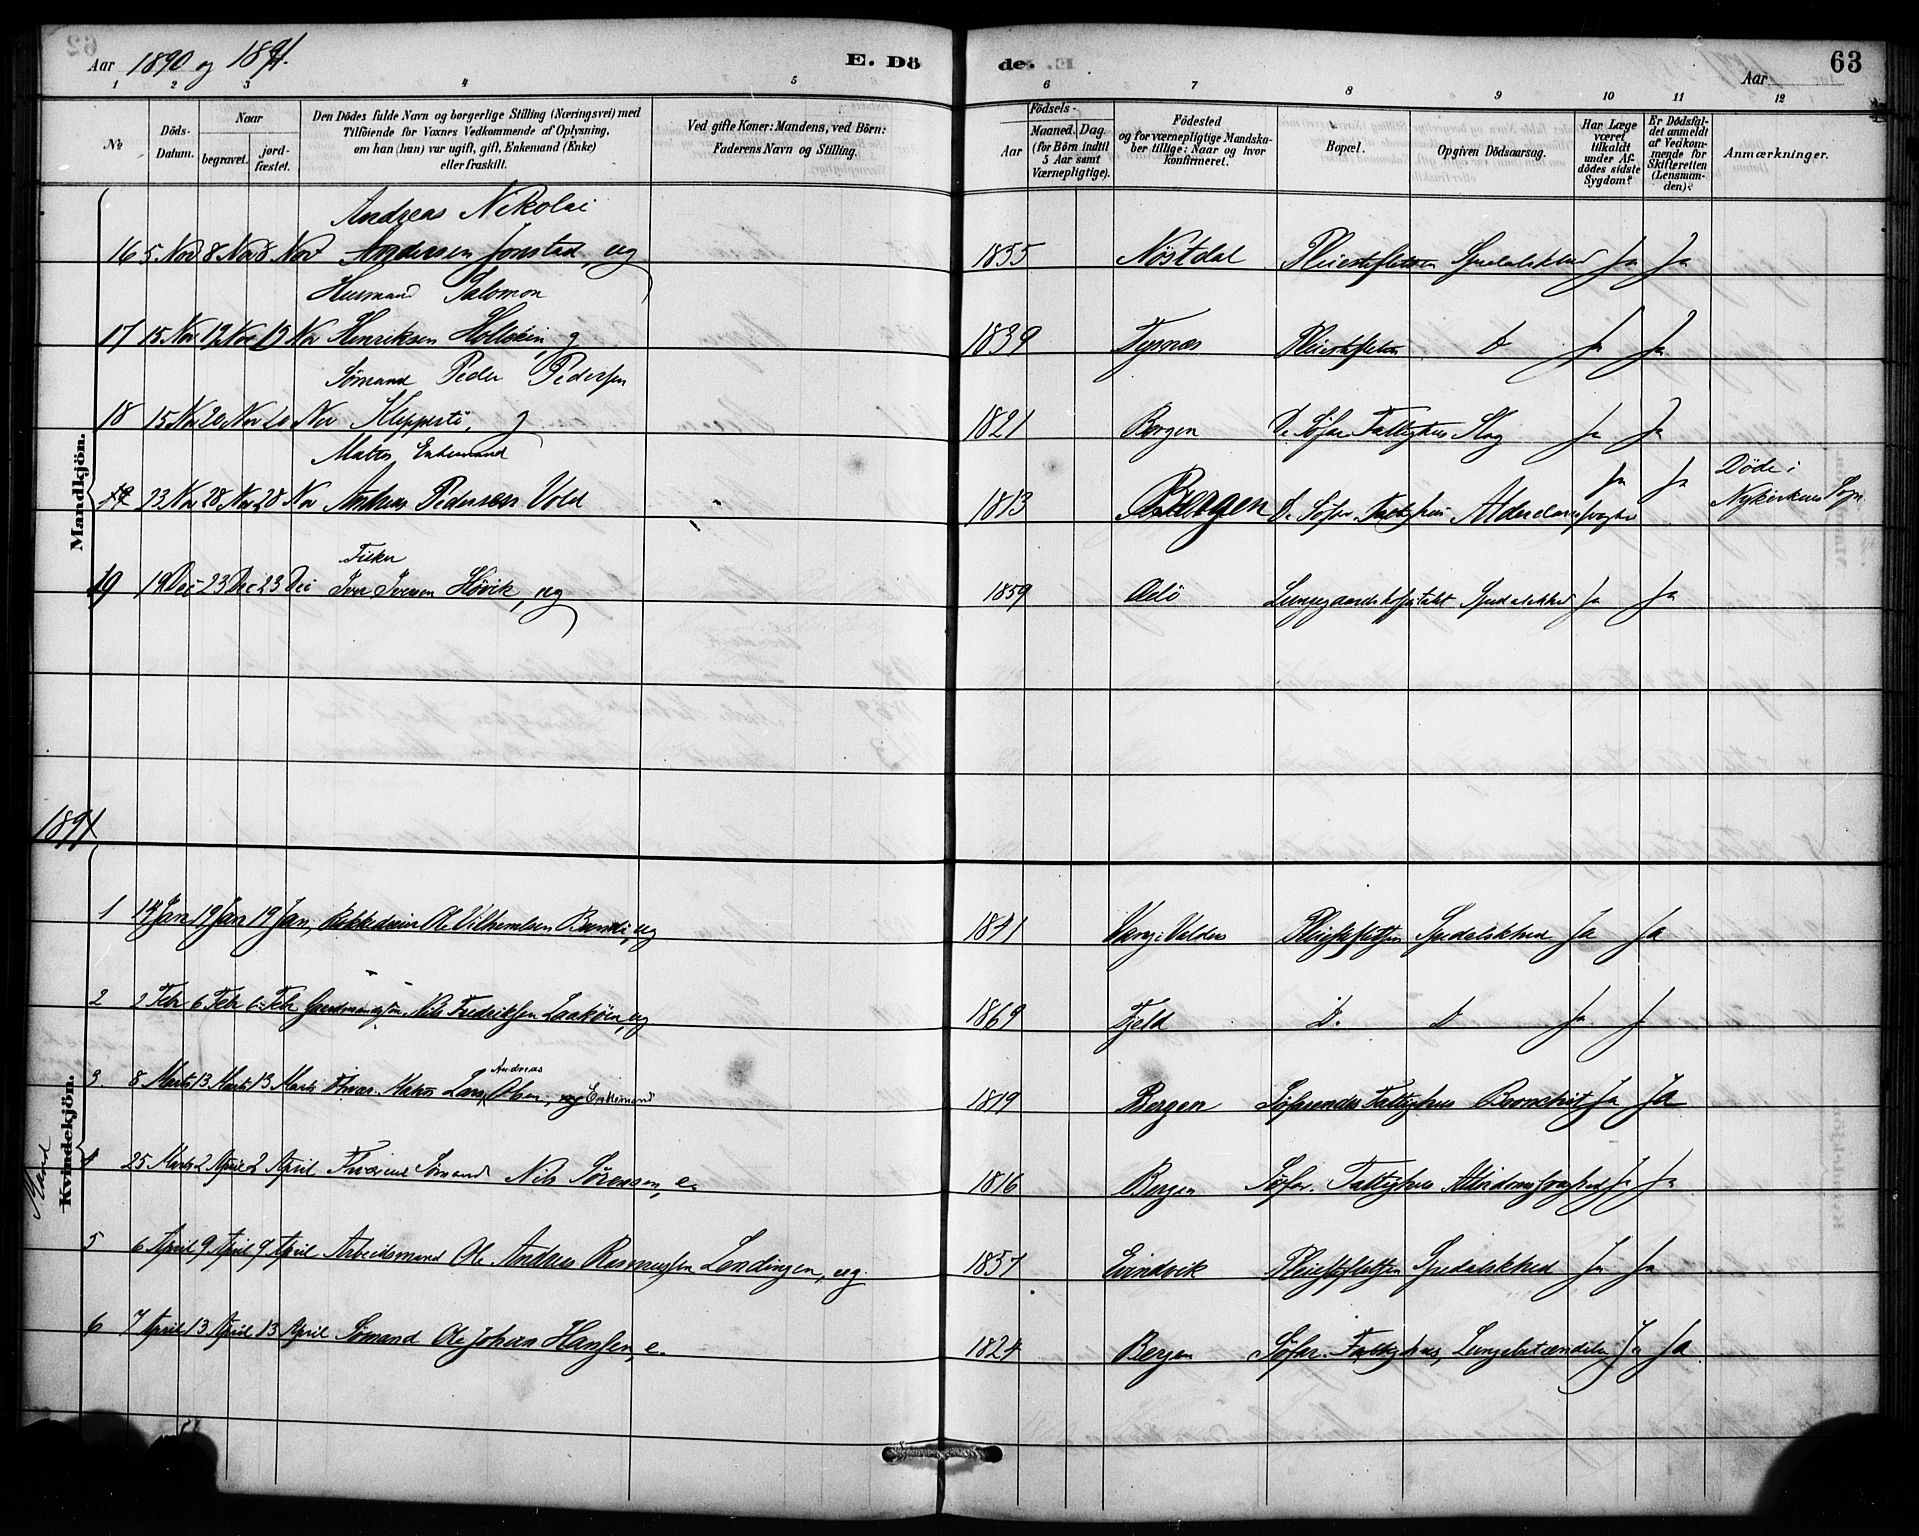 Aar 1890 og 1891.
E. Dö
de.
Aar
63
1 2 3 4 5 6 7 8 9 10 11 12
No
Döds-Datum.
Naar
begravet.
jord-fæstet.
Den Dödes fulde Navn og borgerlige Stilling (Næringsvei) med
Tilföiende for Voxnes Vedkommende af Oplysning,
om han (hun) var ugift, gift, Enkemand (Enke)
eller fraskilt.
Ved gifte Koner: Mandens, ved Börn:
Faderens Navn og Stilling.
Födsels-
Aar
Maaned. Dag.
(for Börn indtil
5 Aar samt
Værnepligtige).
Födested
og for værnepligtige Mandska-
ber tillige: Naar og hvor
Konfirmeret.
Bopæl.
Opgiven Dödsaarsag.
Har Læge
været
tilkaldt
under Af-
dödes sidste
Sygdom?
Er Dödsfal-
det anmeldt
af Vedkom-
mende for
Skifteretten
(Lensman-
den)?
Anmærkninger.
Mandkjön.
Andreas Nikolai
16 5 Nov 8 Nov 8 Nov Andersen Jonstad, ug 1855 Nøstdal Pleiestiftelsen Spedalskhed Ja Ja
Husmand Salomon
17 15 Nov 19 Nov 19 Nov Henriksen g 1839 Tysnæs Pleiestiftelsen D Ja Ja
Sømand Peder Pedersen
18 15 Nov 20 Nov 20 Nov Kleppestø, g 1821 Bergen D. Søfar. Fattighus Slag Ja Ja
Enkemand
19 23 Nov 28 Nov 28 Nov Andreas Pedersen Vold 1813 Bergen D. Søfar. Fattighus Alderdomssvaghed Ja Ja Døde i
Nykirkens Sogn
Fisker
19 19 Dec 23 Dec 23 Dec Iver Iversen Høvik, ug 1859 Lungegaardshospitalet Spedalskhed Ja Ja
1891
Mand
Kvindekjön.
1 14 Jan 19 Jan 19 Jan Ole Vilhemlsen ug 1841 Vang i Valders Pleiestiftelsen Spedalskhed Ja Ja
2 2 Febr 6 Febr 6 Febr Gaardmandssøn Nils Fredriksen ug 1869 Fjeld D. D Ja Ja
Andreas
3. 8 Marts 13 Marts 13 Marts Lars Olsen, ug Enkemand 1819 Bergen Søfarendes Fattighus Bronchit Ja Ja
4 25 Marts 2 April 2 April Sømand Nils Sørensen, e. 1816 Bergen Søfar. Fattighus Alderdomssvaghed Ja Ja
5 6 April 9 April 9 April Arbeidsmand Ole Andreas Rasmussen Lendingen, ug. 1857 Evindvik Pleiestiftelsen Spedalskhed Ja Ja
6 7 April 13 April 13 April Sømand Ole Johan Hansen, e. 1824 Bergen Søfar. Fattighus, Lungebetændelse Ja Ja